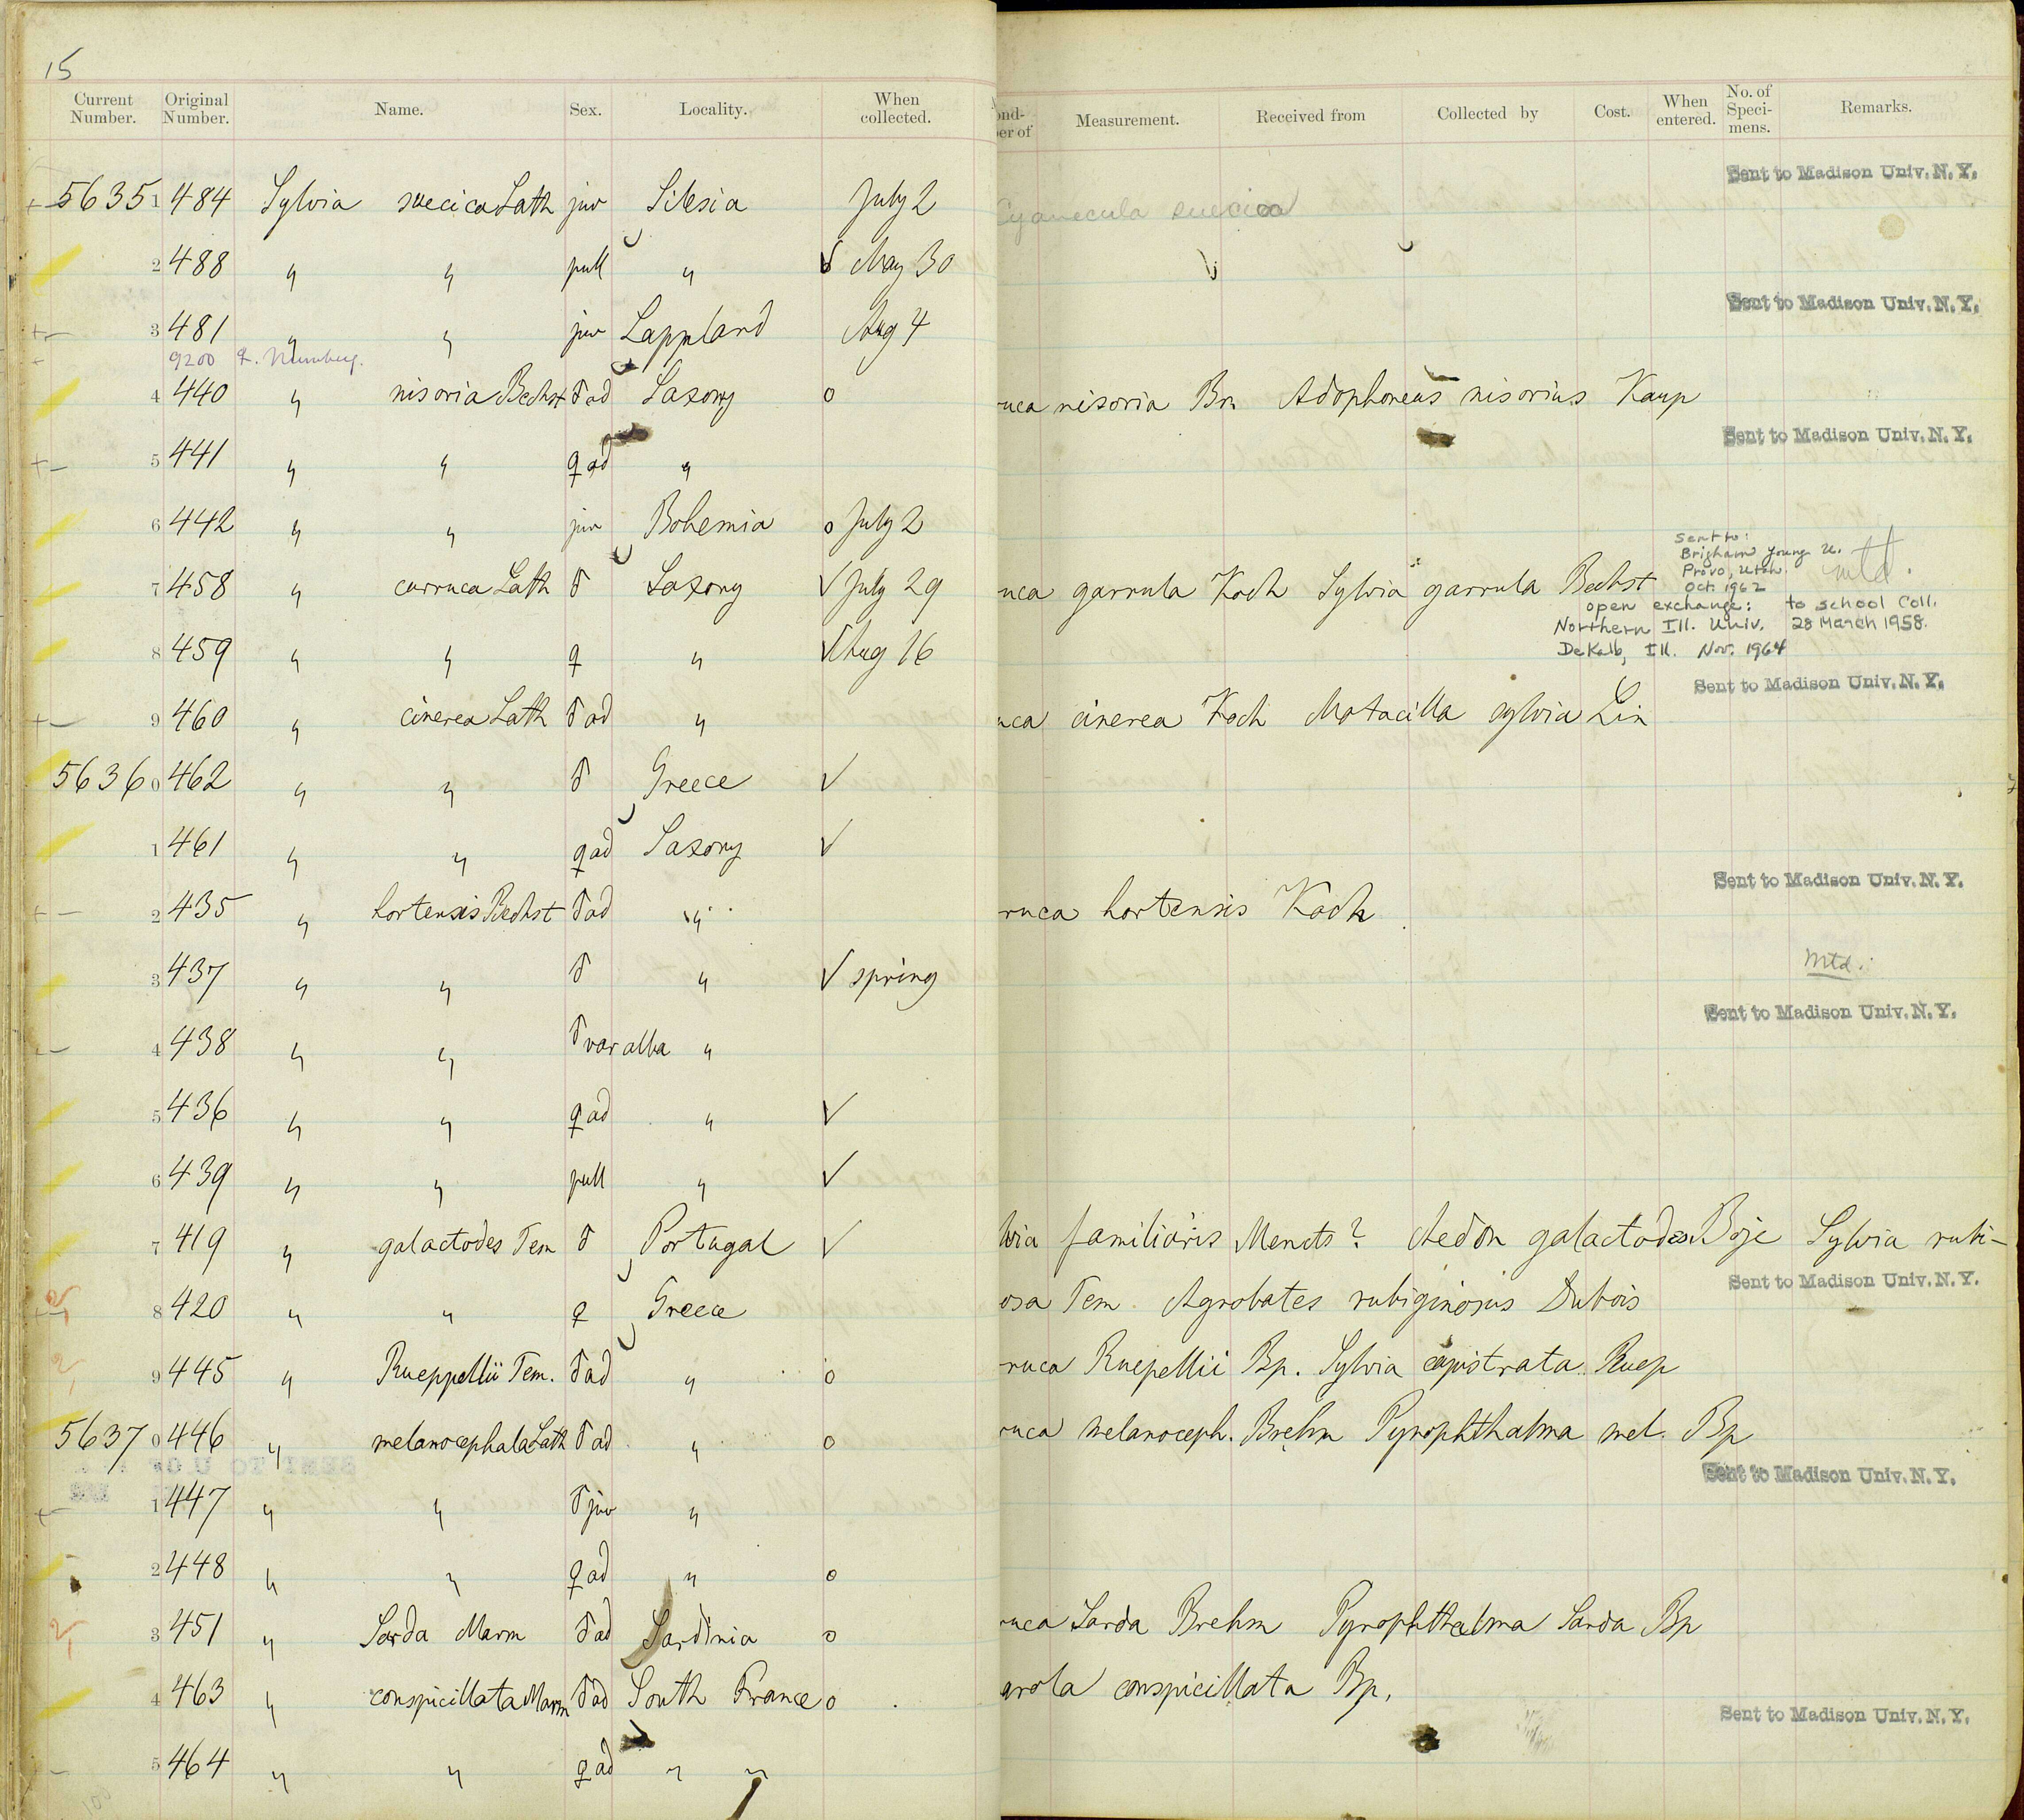 15
Current Number. Original Number. Name. Sex. Locality. When collected. Measurement. Received from Collected by Cost. When entered. No. of Speci-mens. Remarks.
Sent to Madison Univ. N. Y.
56351 484 Sylvia suecica Lath juv Silesia July 2 Cyanecula suecica
2 488 " " pull " √ May 30
Sent to Madison Univ. N. Y.
3 481 " " juv Lappland Aug 4
9200
4 440 " nisoria Bechst ♂ ad Saxony o uca nisoria Br. Adophoneus nisorius Kaup
Sent to Madison Univ. N. Y.
5 441 " " ♀ ad "
6 442 " " juv Bohemia o July 2
sent to:
Brigham Young U.
Provo, Utah. mtd.
Oct. 1962
7 458 " curruca Lath ♂ Saxony √ July 29 uca garrula Koch Sylvia garrula Bechst
open exchange: to school Coll.
Northern Ill. Univ. 28 March 1958.
DeKalb, Ill. Nov. 1964
8 459 " " ♀ " √ Aug 16
Sent to Madison Univ. N. Y.
9 460 " cinerea Lath ♂ ad " uca cinerea Koch Motacilla sylvia Lin
56360 462 " " ♂ Greece √
1 461 " " ♀ ad Saxony √
Sent to Madison Univ. N. Y.
2 435 " hortensis Bechst ♂ ad " ruca hortensis Koch
Mtd.
3 437 " " ♂ " √ spring
Sent to Madison Univ. N. Y.
4 438 " " ♂ var alba "
5 436 " " ♀ ad " √
6 439 " " pull " √
7 419 " galactodes Tem ♂ Portugal √ lvia familiaris Menets? Aedon galactodes Boje Sylvia rubi-
Sent to Madison Univ. N. Y.
8 420 " " ♀ Greece osa Tem. Agrobates rubiginosus Dubois
9 445 " Rueppellii Tem. ♂ ad " o ruca Ruepellii Bp. Sylvia capistrata Ruep
56370 446 " melanocephala Lath ♂ ad " o ruca melanoceph. Brehm Pyrophthalma mel. Bp
Sent to Madison Univ. N. Y.
1 447 " " ♂ juv "
2 448 " " ♀ ad " o
3 451 " Sarda Marm ♂ ad Sardinia o uca Sarda Brehm Pyrophthalma Sarda Bp
4 463 " conspicillata Marm ♂ ad South France o conspicillata Bp.
Sent to Madison Univ. N. Y.
5 464 " " ♀ ad " "